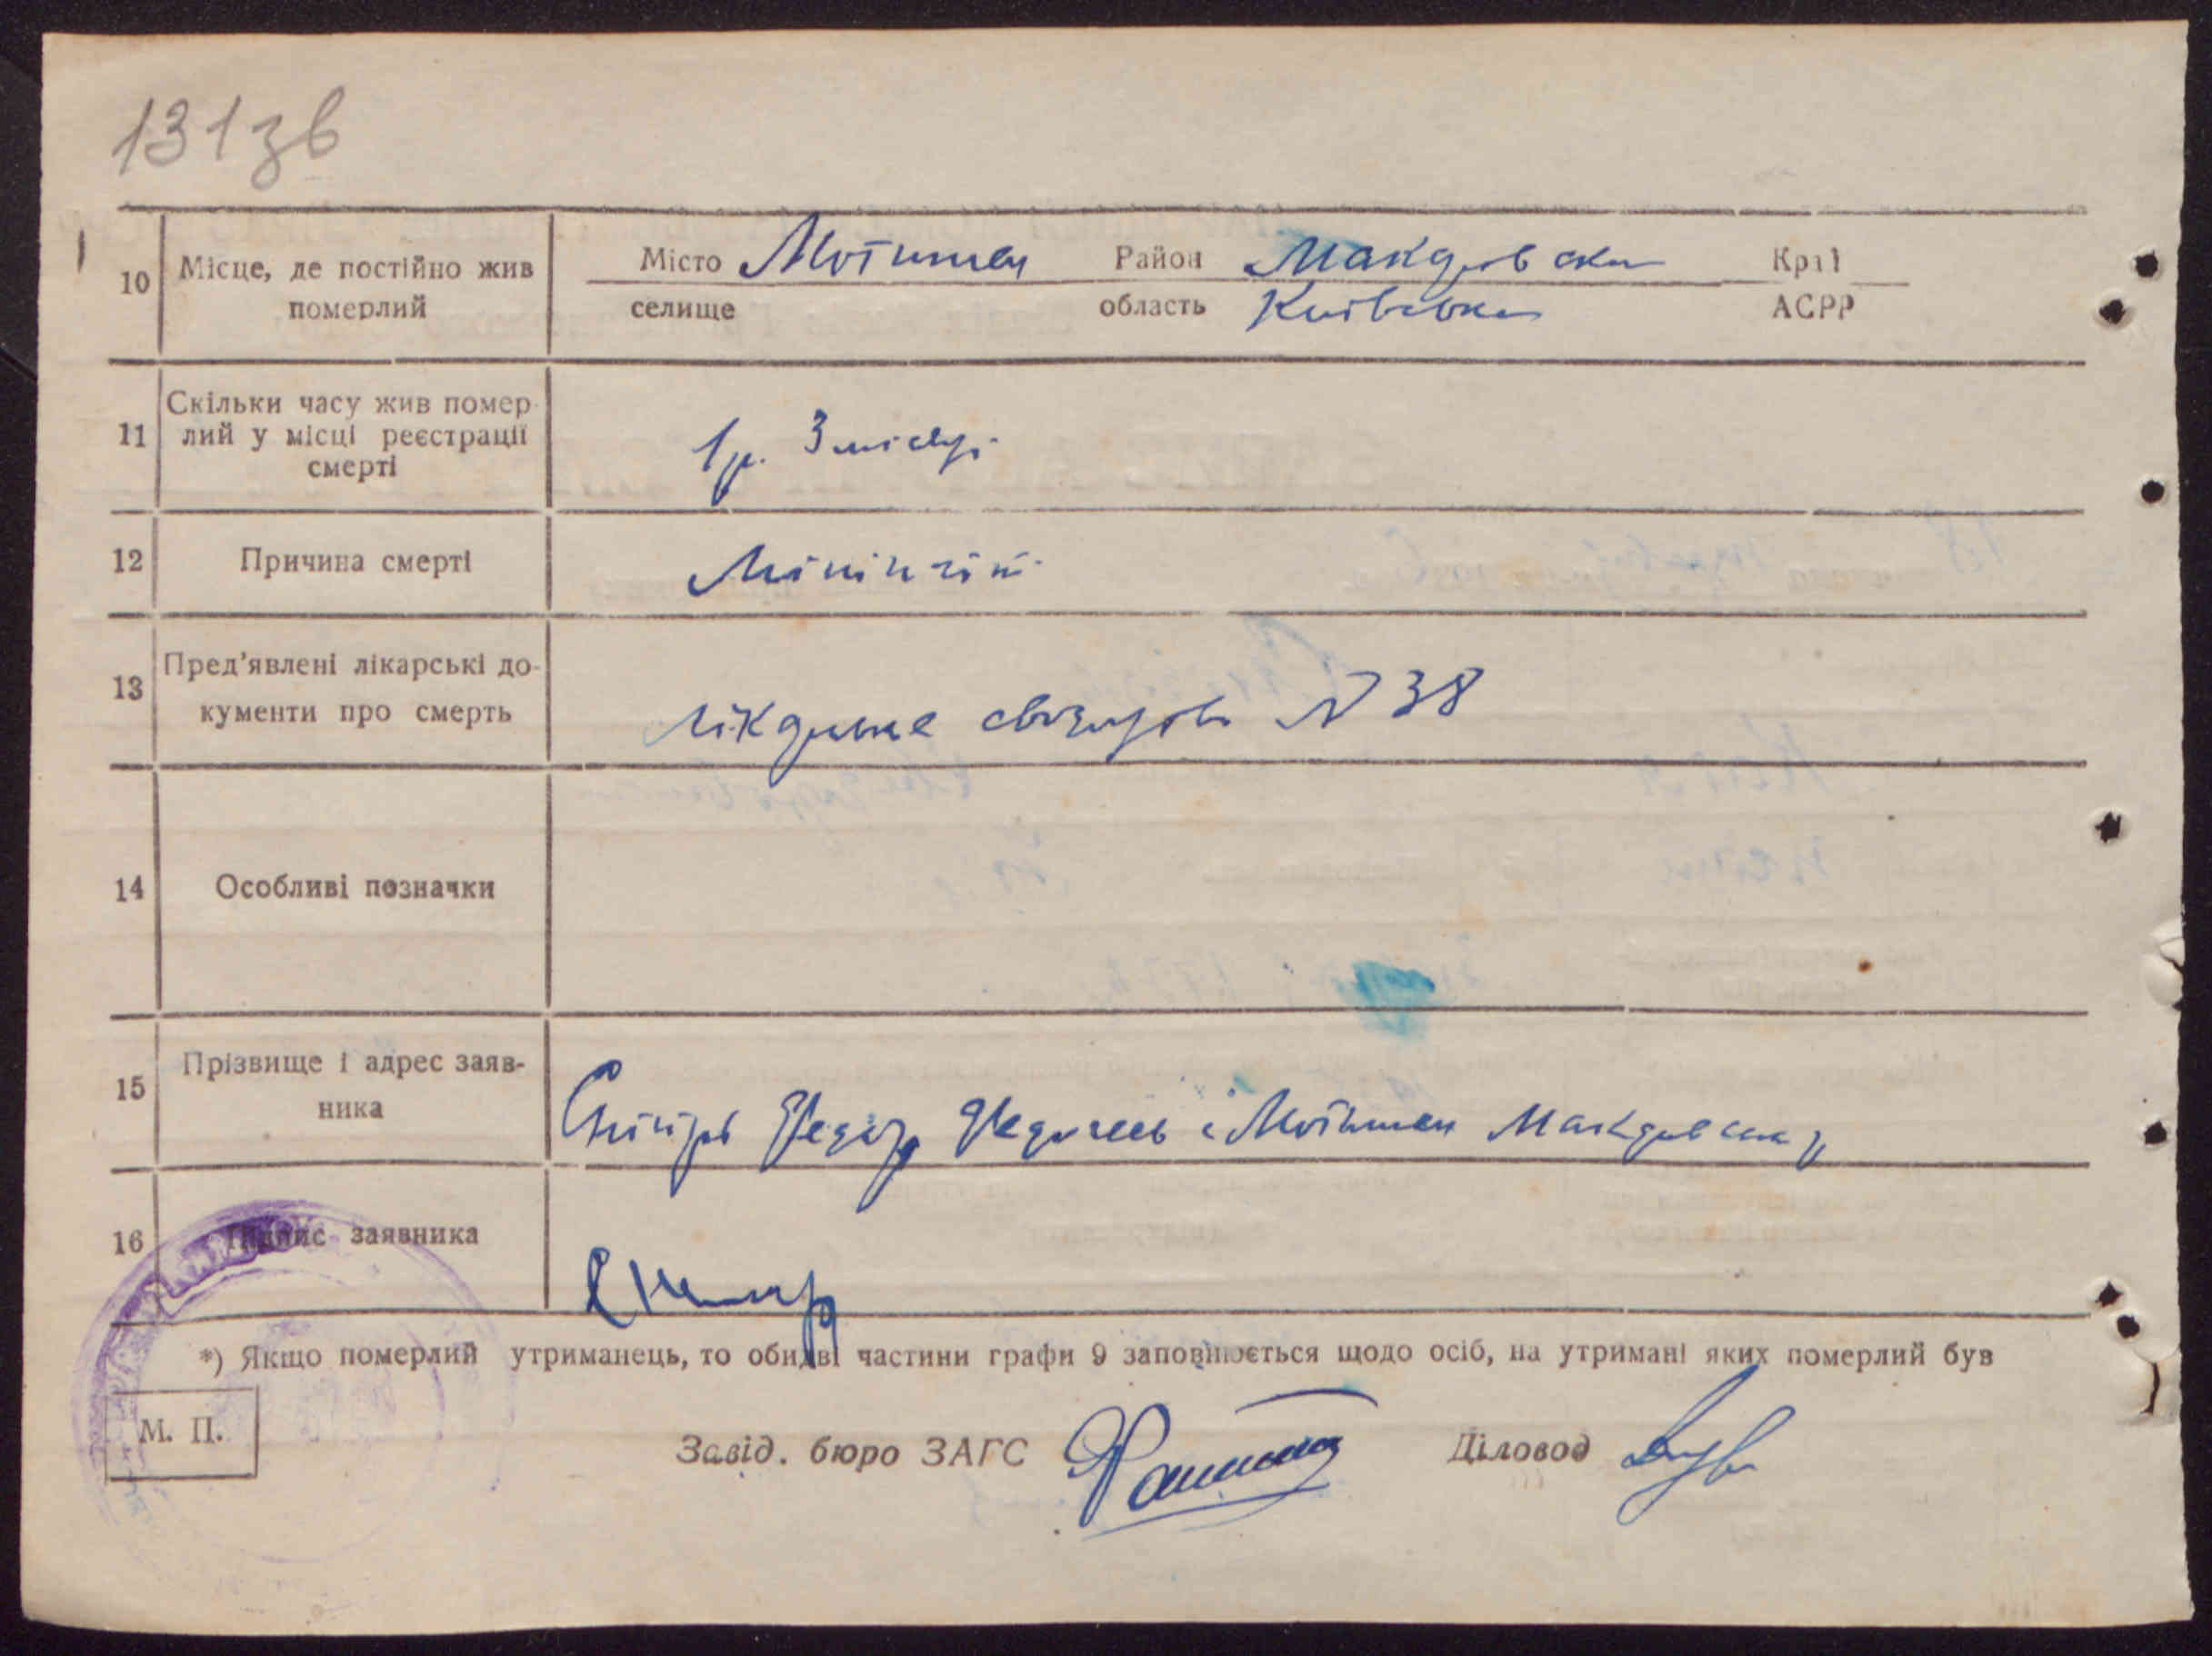 131зв
10 Місце, де постійно жив померлий Місто Мотижен Район Макарівськ Край
селище область Київська АСРР
11 Скільки часу жив помер-
лий у місці реєстрації
смерті
1 р. 3 місяці
12 Причина смерті Менінгіт
13 Пред'явлені лікарські до-
кументи про смерть
лікарське свідоцтво № 38
14 Особливі позначки
15 Прізвище і адрес заяв-
ника
Федір с Мотижен Макарівськ р
16 Підпис заявника
*) Якщо померлий утриманець, то обидві частини графи 9 заповнюється щодо осіб, на утримані яких померлий був
М. П.
Завід. бюро ЗАГС Діловод